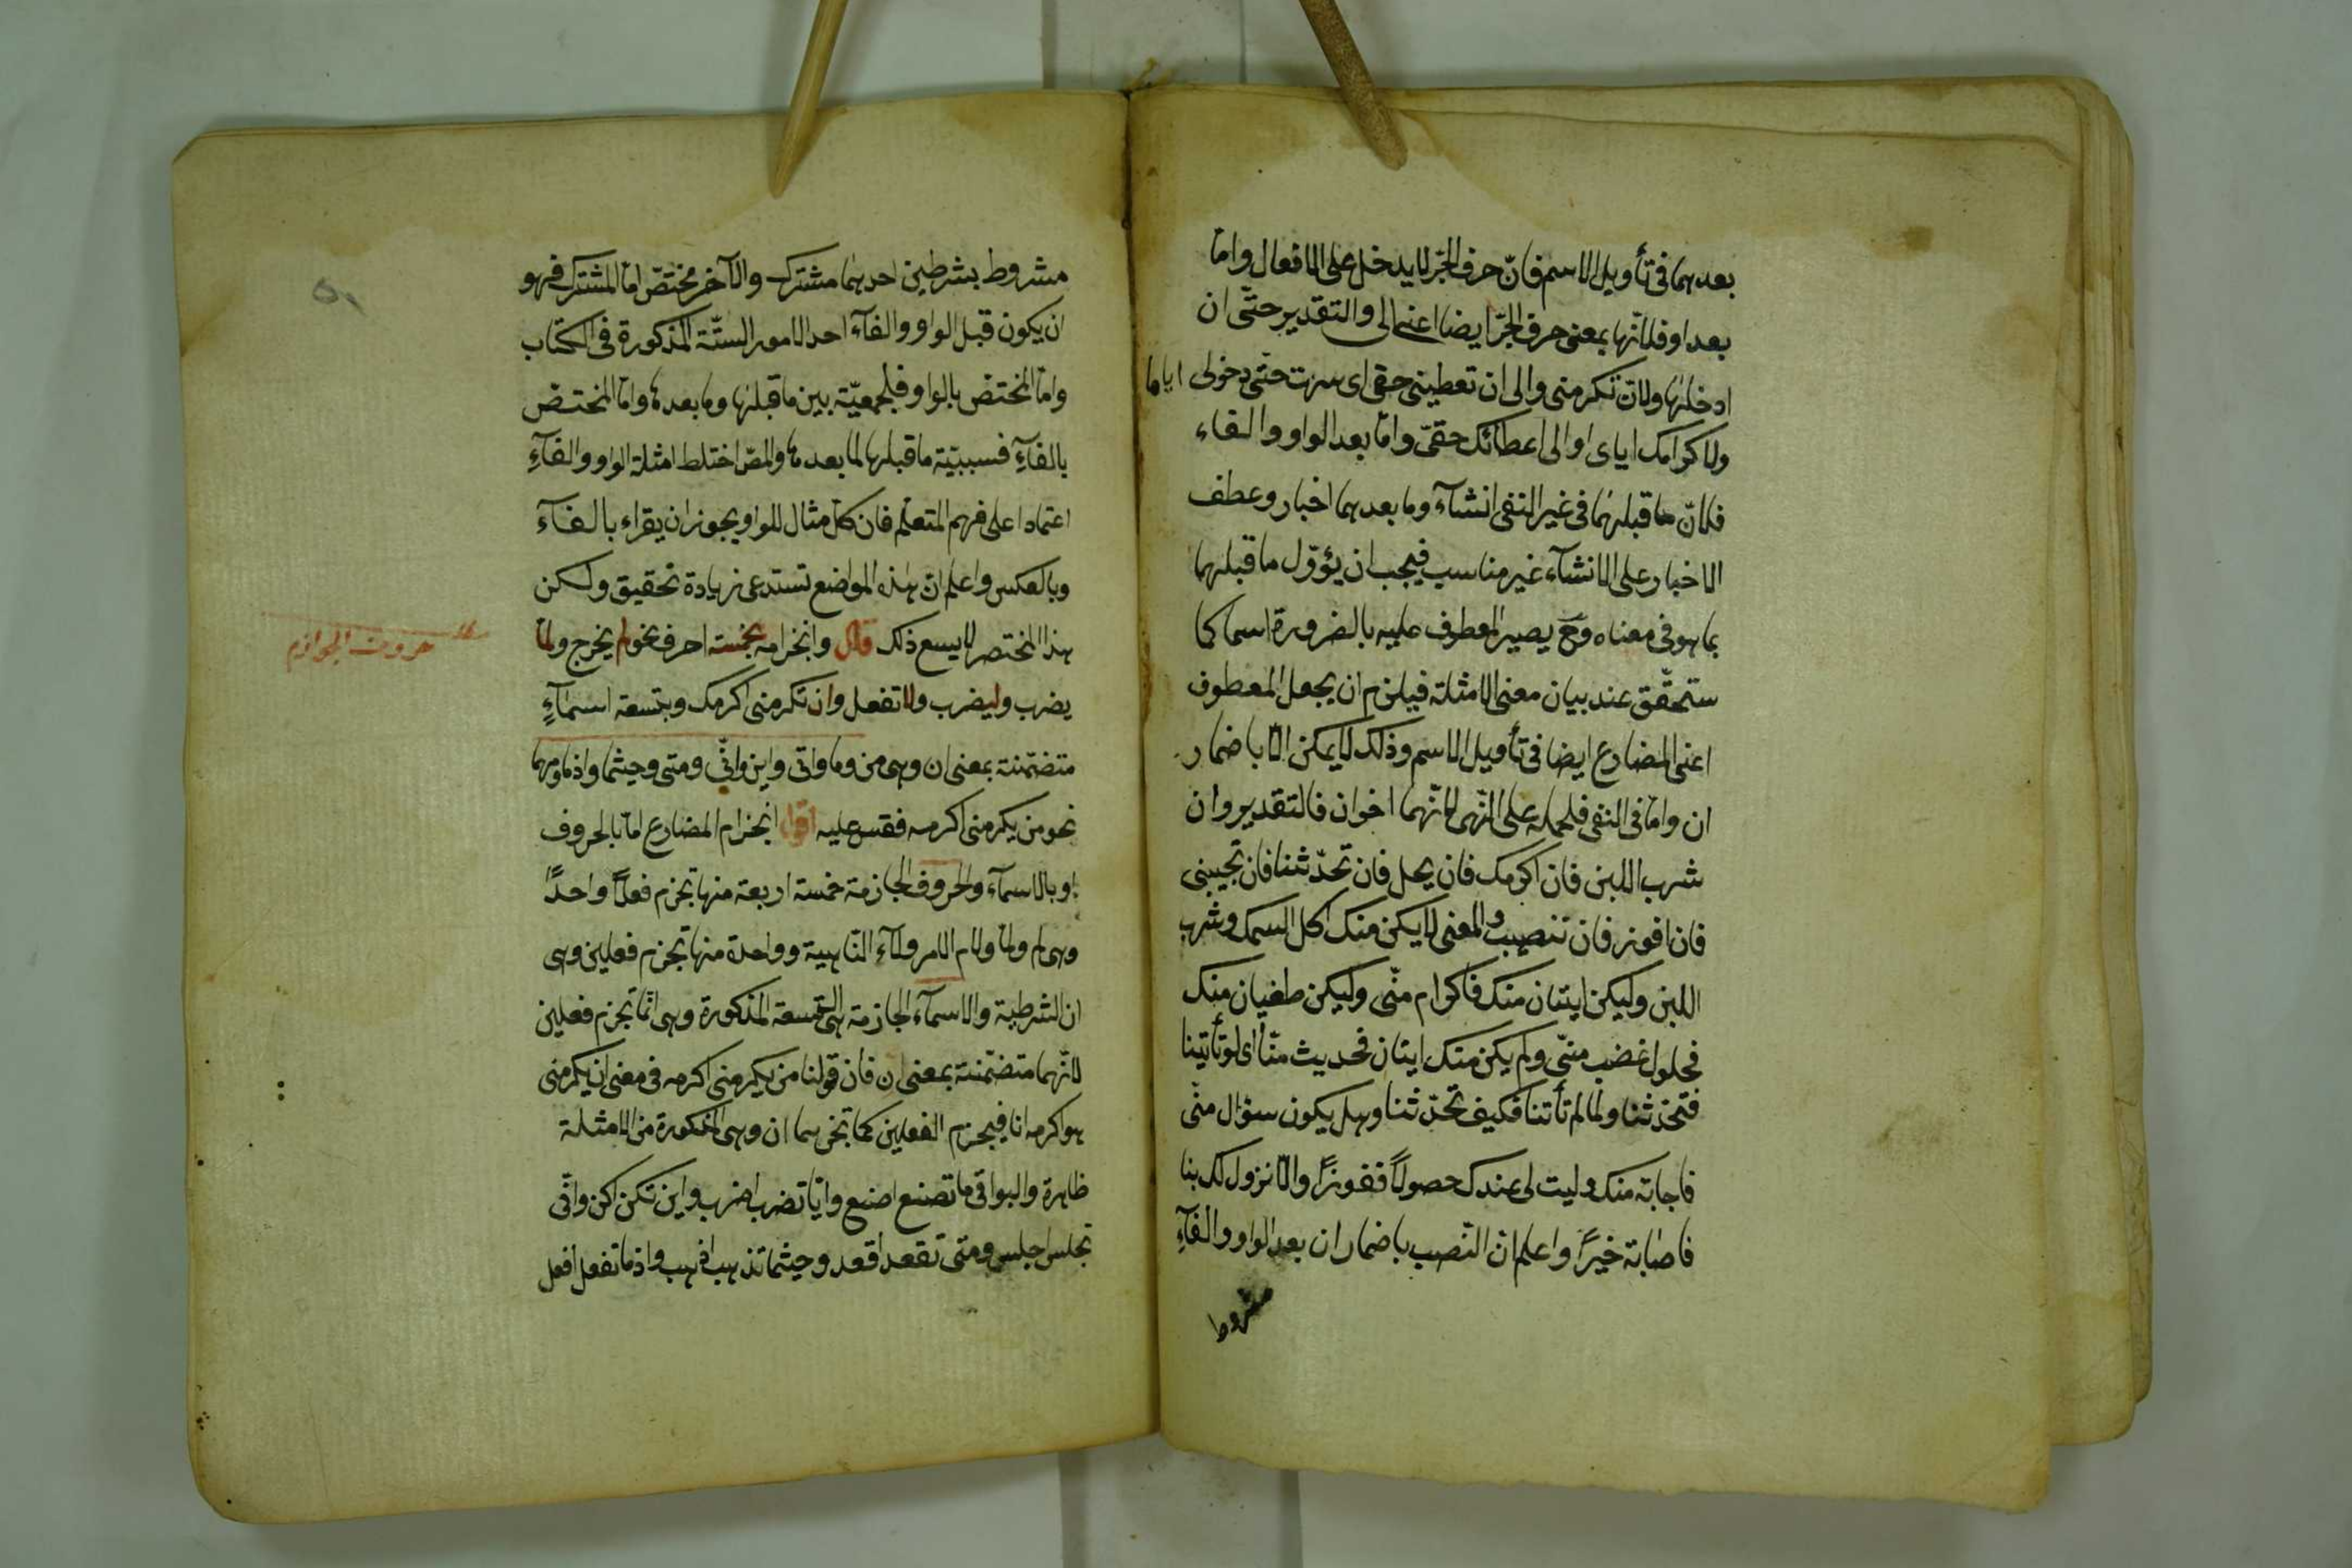 بعدهما فى تأويل الاسم فانّ حرف الجرّ لا يدخل على الافعال وامّا
بعد او فلانّها بمعنى حرف الجرّ ايضا اعنى الى والتقدير حتّى ان
ادخلها ولان تكرمنى والى ان تعطينى حقى اى سرت حتّى دخولى اياما
ولاكرامك اياى او الى اعطائك حقىّ وامّا بعد الواو والفاء
فلانّ ما قبلهما فى غير النفى انشآء وما بعدهما اخبار وعطف
الاخبار على الانشآء غير مناسب فيجب ان يؤوّل ما قبلهما
بما هو فى معناه وح يصير المعطوف عليه بالضرورة اسما كما
ستحقّق عند بيان معنى الامثلة فيلزم ان يجعل المعطوف
اعنى المضارع ايضا فى تأويل الاسم وذلك لا يمكن الّا باضمار
ان وامّا فى النفى فلحمله على النّهى لانّهما اخوان فالتقدير وان
شرب اللبن فان اكرمك فان يحل فان تحدّثنا فان تجيبنى
فان افوز فان تنصيب والمعنى لا يكن منك اكل السمك وشرب
اللبن وليكن ايتيان منك فاكرام منّى وليكن طغيان منك
فحلول غضب منّى ولم يكن منك ايتان فحديث منّا اى لو تأتينا
فتحدّثنا ولمّا لم تأتنا فكيف تحدّثنا وهل يكون سؤال منّى
فاجابة منك وليت لى عندك حصولاً ففوزاً والّا نزول لك بنا
فاصابة خيراً واعلم انّ النّصب باضمار ان بعد الواو والفآءِ
مشروط
مشروط بشرطين احدهما مشترك والآخر مختصّ امّا المشترك فهو
ان يكون قبل الواو والفآء احد الامور الستّة المذكورة فى الكتاب
وامّا المختصّ بالواو فلجمعيّة بين ما قبلها وما بعدها وامّا المختصّ
بالفآءِ فسببيّة ما قبلها لما بعدها والمصّ اختلط امثلة الواو والفآءِ
اعتمادا على فهم المتعلّم فان كلّ مثال للواو يجوز ان يقراء بالفآء
وبالعكس واعلم انّ هذه المواضع تستدعى زيادة تحقيق ولكن
هذا المختصر لا يسع ذلك قال وانجزامه بخمسة احرف نحو لم يخرج ولمّا
حروف الجوازم
يضرب وليضرب ولا تفعل وان تكرمنى اكرمك وبتسعة اسمآءٍ
متضمّنة بمعنى ان وهى من وما واىّ واين وانّى ومتى وحيثما واذما ومهما
نحو من يكرمنى اكرمه فقس عليه اقول انجزام المضارع امّا بالحروف
او بالاسمآء والحروف الجازمة خمسة اربعة منها تجزم فعلاً واحداً
وهى لم ولمّا ولام الامر ولآء النّاهية وواحدة منها تجزم فعلين وهى
ان الشرطية والاسمآء الجازمة هى التّسعة المذكورة وهى انّما تجزم فعلين
لانّهما متضمّنة بمعنى ان فان قولنا من يكرمنى اكرمه فى معنى ان يكرمنى
هو اكرمه انا فيجزم الفعلين كما تجزمهما ان وهى المذكورة من الامثلة
ظاهرة والبواقى ما تصنع اصنع وايّا تضرب اضرب واين تكن اكن وانّى
تجلس اجلس ومتى تقعد اقعد وحيثما تذهب اذهب واذما تفعل افعل